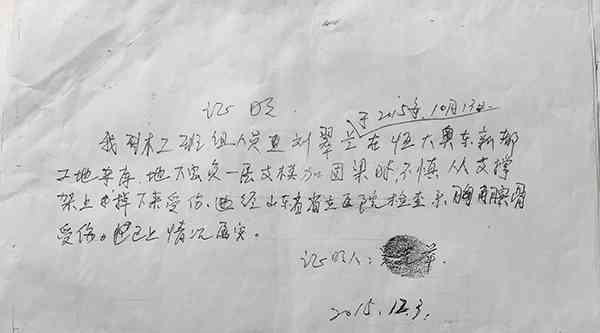 证明
于2015年10月17日
我司木工班组人员 刘翠兰在恒大奥东新都
工地车库地下室负一层支模加固梁时不慎从支撑
架上 掉下来受伤。 经山东省省立医院检查系胸 腰骨
受伤。 以上情况属实。
证明人:
2015.12.3.